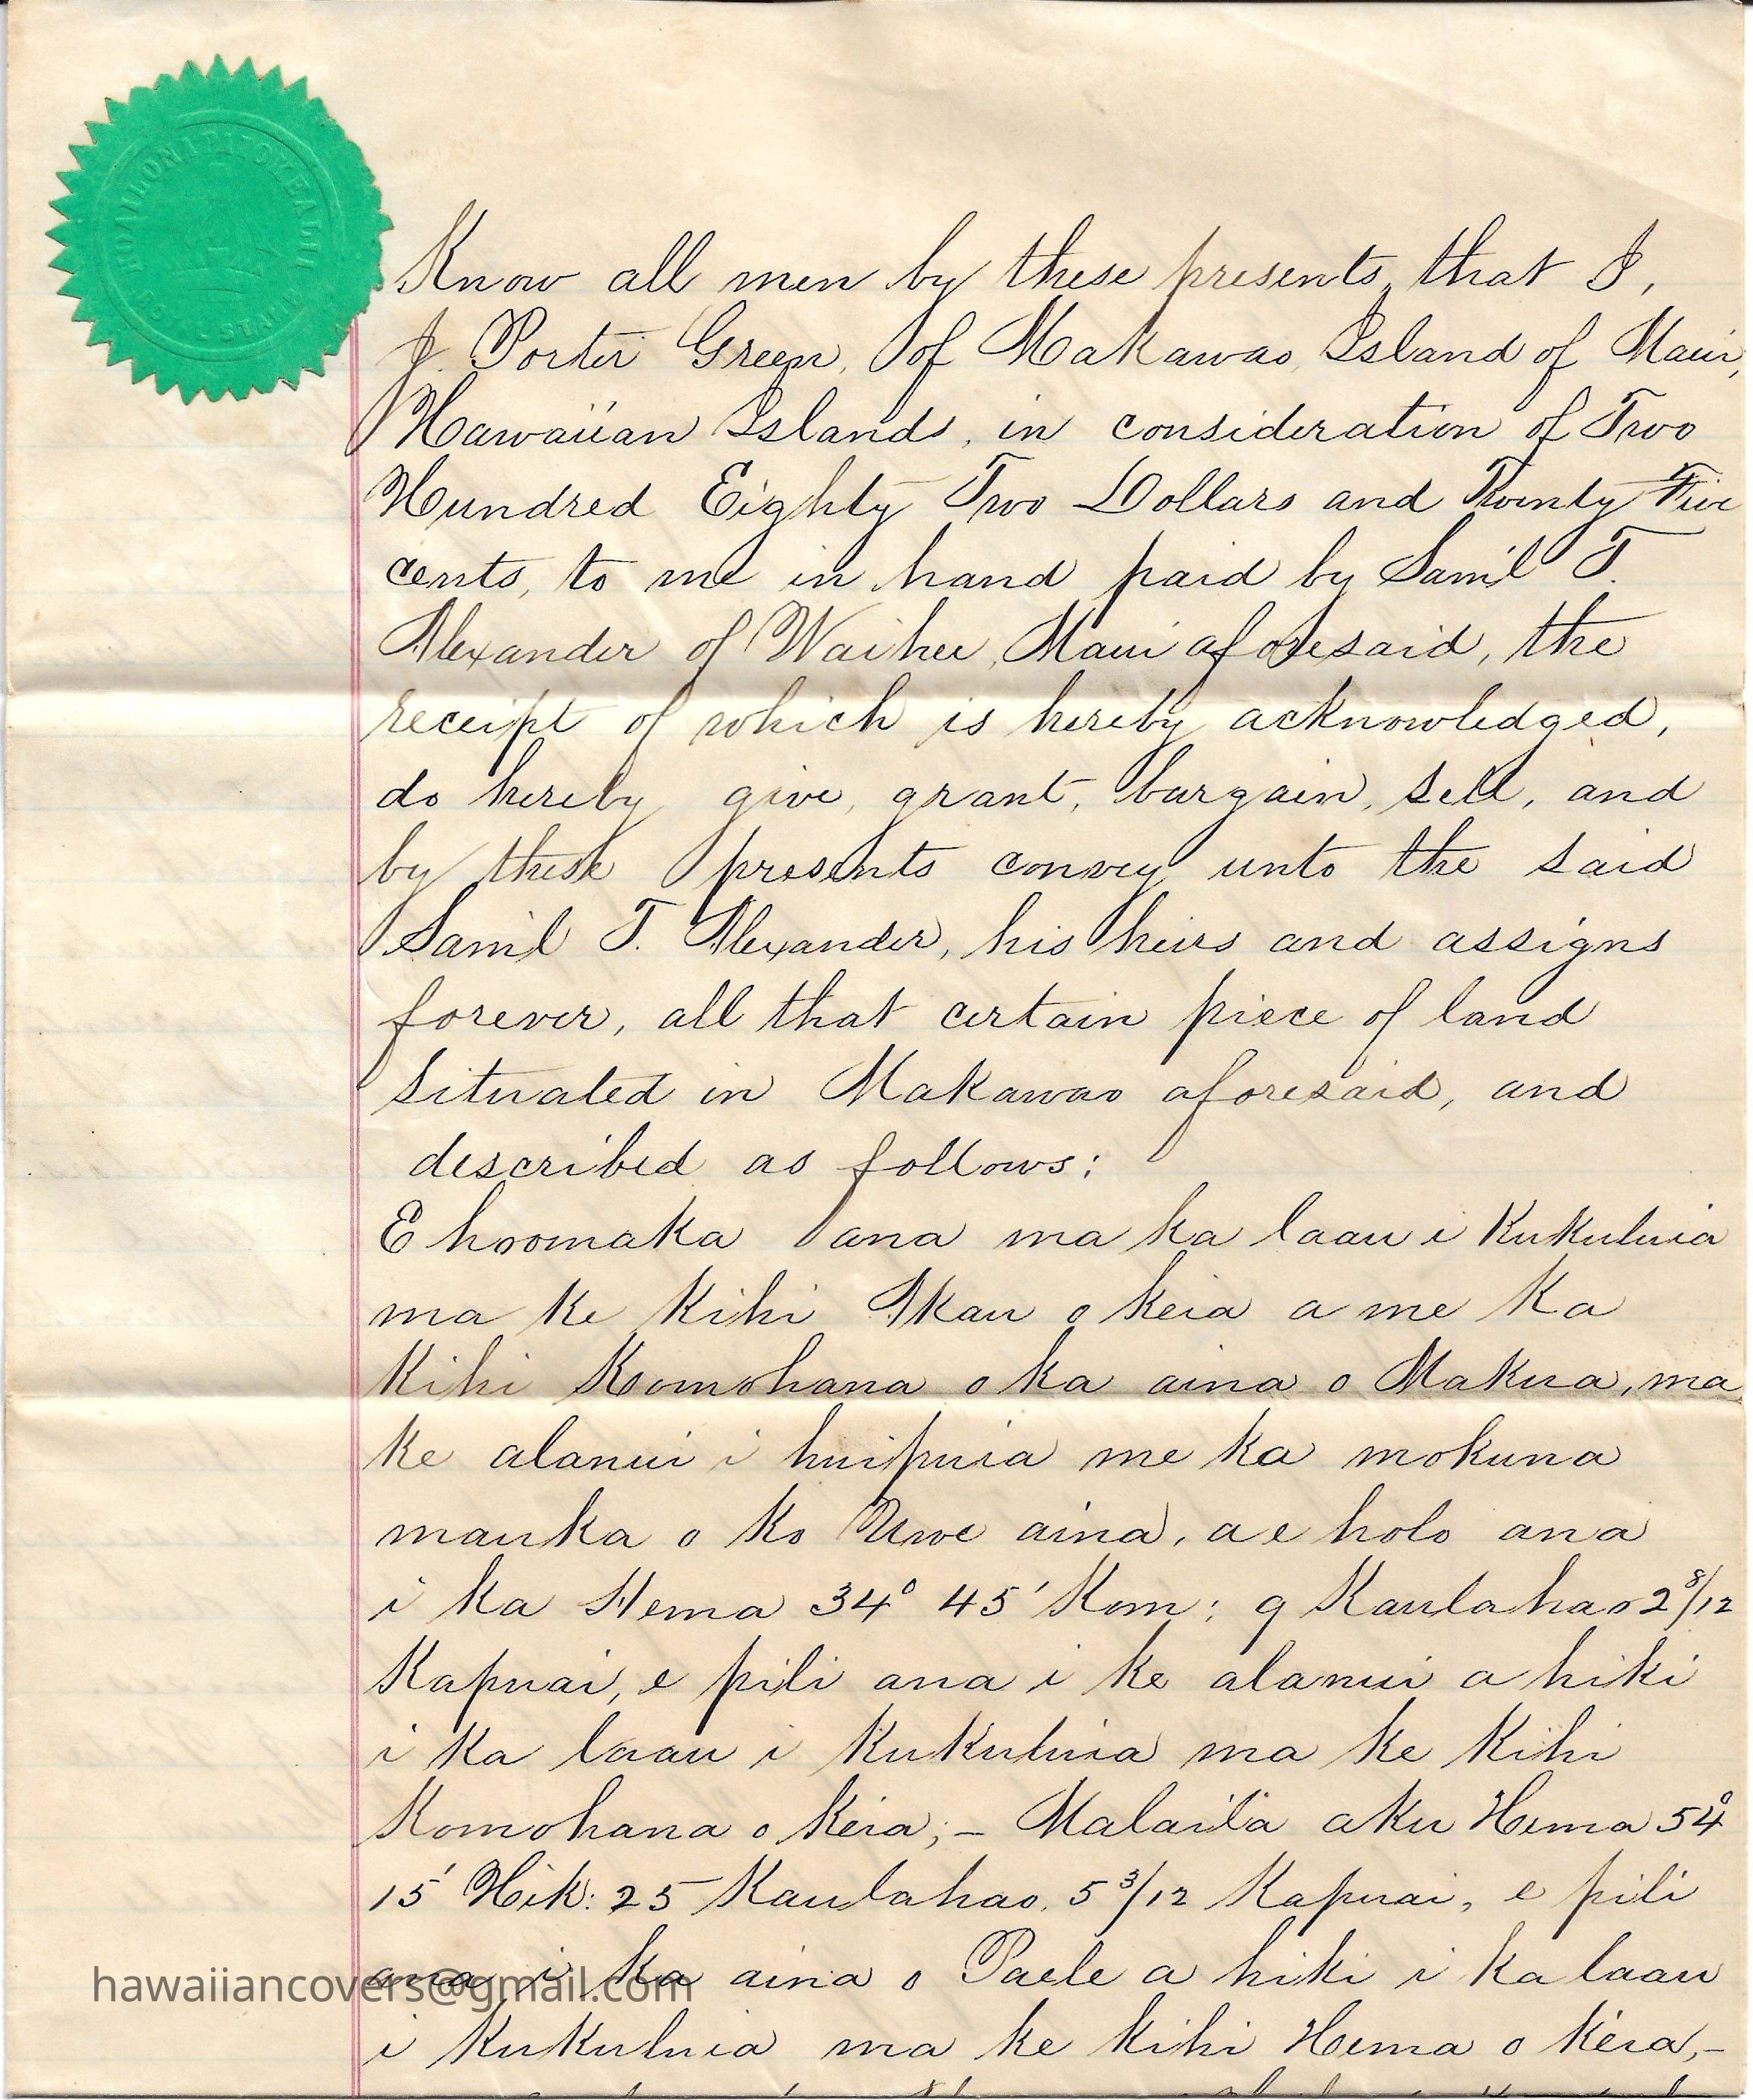 Know all men by these presents, that I,
J. Porter Green, of Makawao, Island of Maui,
Hawaiian Islands, in consideration of Two
Hundred Eighty Two Dollars and Twenty Five
cents, to me in hand paid by Sam'l T.
Alexander of Waihee, Maui aforesaid, the
receipt of which is hereby acknowledged,
do hereby give, grant, bargain, sell, and
by these presents convey unto the said
Sam'l T. Alexander, his heirs and assigns
forever, all that certain piece of land
situated in Makawao aforesaid, and
described as follows:
E hoomaka ana ma ka laau i Kukuluia
ma ke Kihi Akau o keia a me ka
Kihi Komohana o ka aina o Makua, ma
ke alanui i huipuia me ka mokuna
mauka o ko Uwe aina, a e holo ana
i ka Hema 34° 45' Kom: 9 Kaulahao 2 8/12
Kapuai, e pili ana i ke alanui a hiki
i ka laau i Kukuluia ma ke Kihi
Komohana o keia;- Malaila aku Hema 54°
15' Hik: 25 Kaulahao, 5 3/12 Kapuai, e pili
ana i ka aina o Paele a hiki i ka laau
hawaiiancovers@gmail.com
i Kukuluia ma ke Kihi Hema o keia,-